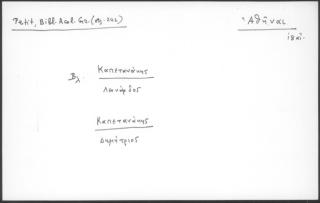 Petit, Bibl. Acol. Gr. (σ. 242) Ἀθῆναι
18 αἰ.
Βλ. Καπετανάκης
Λεονάρδος
Καπετανάκης
Δημήτριος